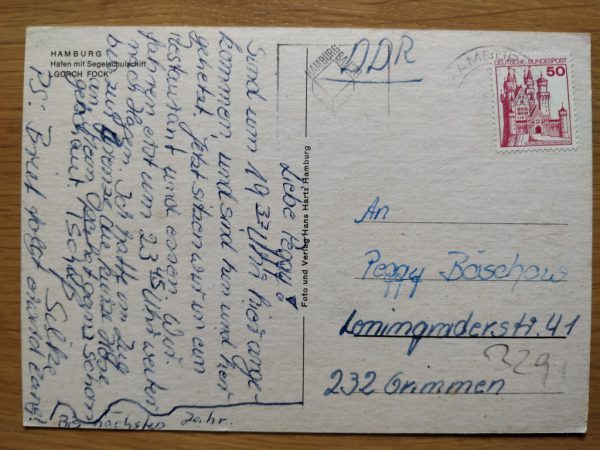 HAMBURG
Hafen mit Segelschulschiff
"GORCH FOCK"
Liebe Peggy!
Sind um 19 32 Uhr hier ange-
kommen, und sind hin und her
gehetzt. Jetzt sitzen wir in ein
Restaurant und essen. Wir
fahren erst um 23 45 Uhr weiter
nach Hagen. Ich hatte im Zug
bis zur Grenze die
ganz schön
geklaut. Tschüß
Silke
PS: Brief folgt
Bis nächsten Jahr.
Foto und Verlag Hans Hartz Hamburg
HAMBURG
DDR
DEUTSCHE BUNDESPOST
50
An
Peggy Bäschow
Leningraderstr. 41
2321
232 Grimmen